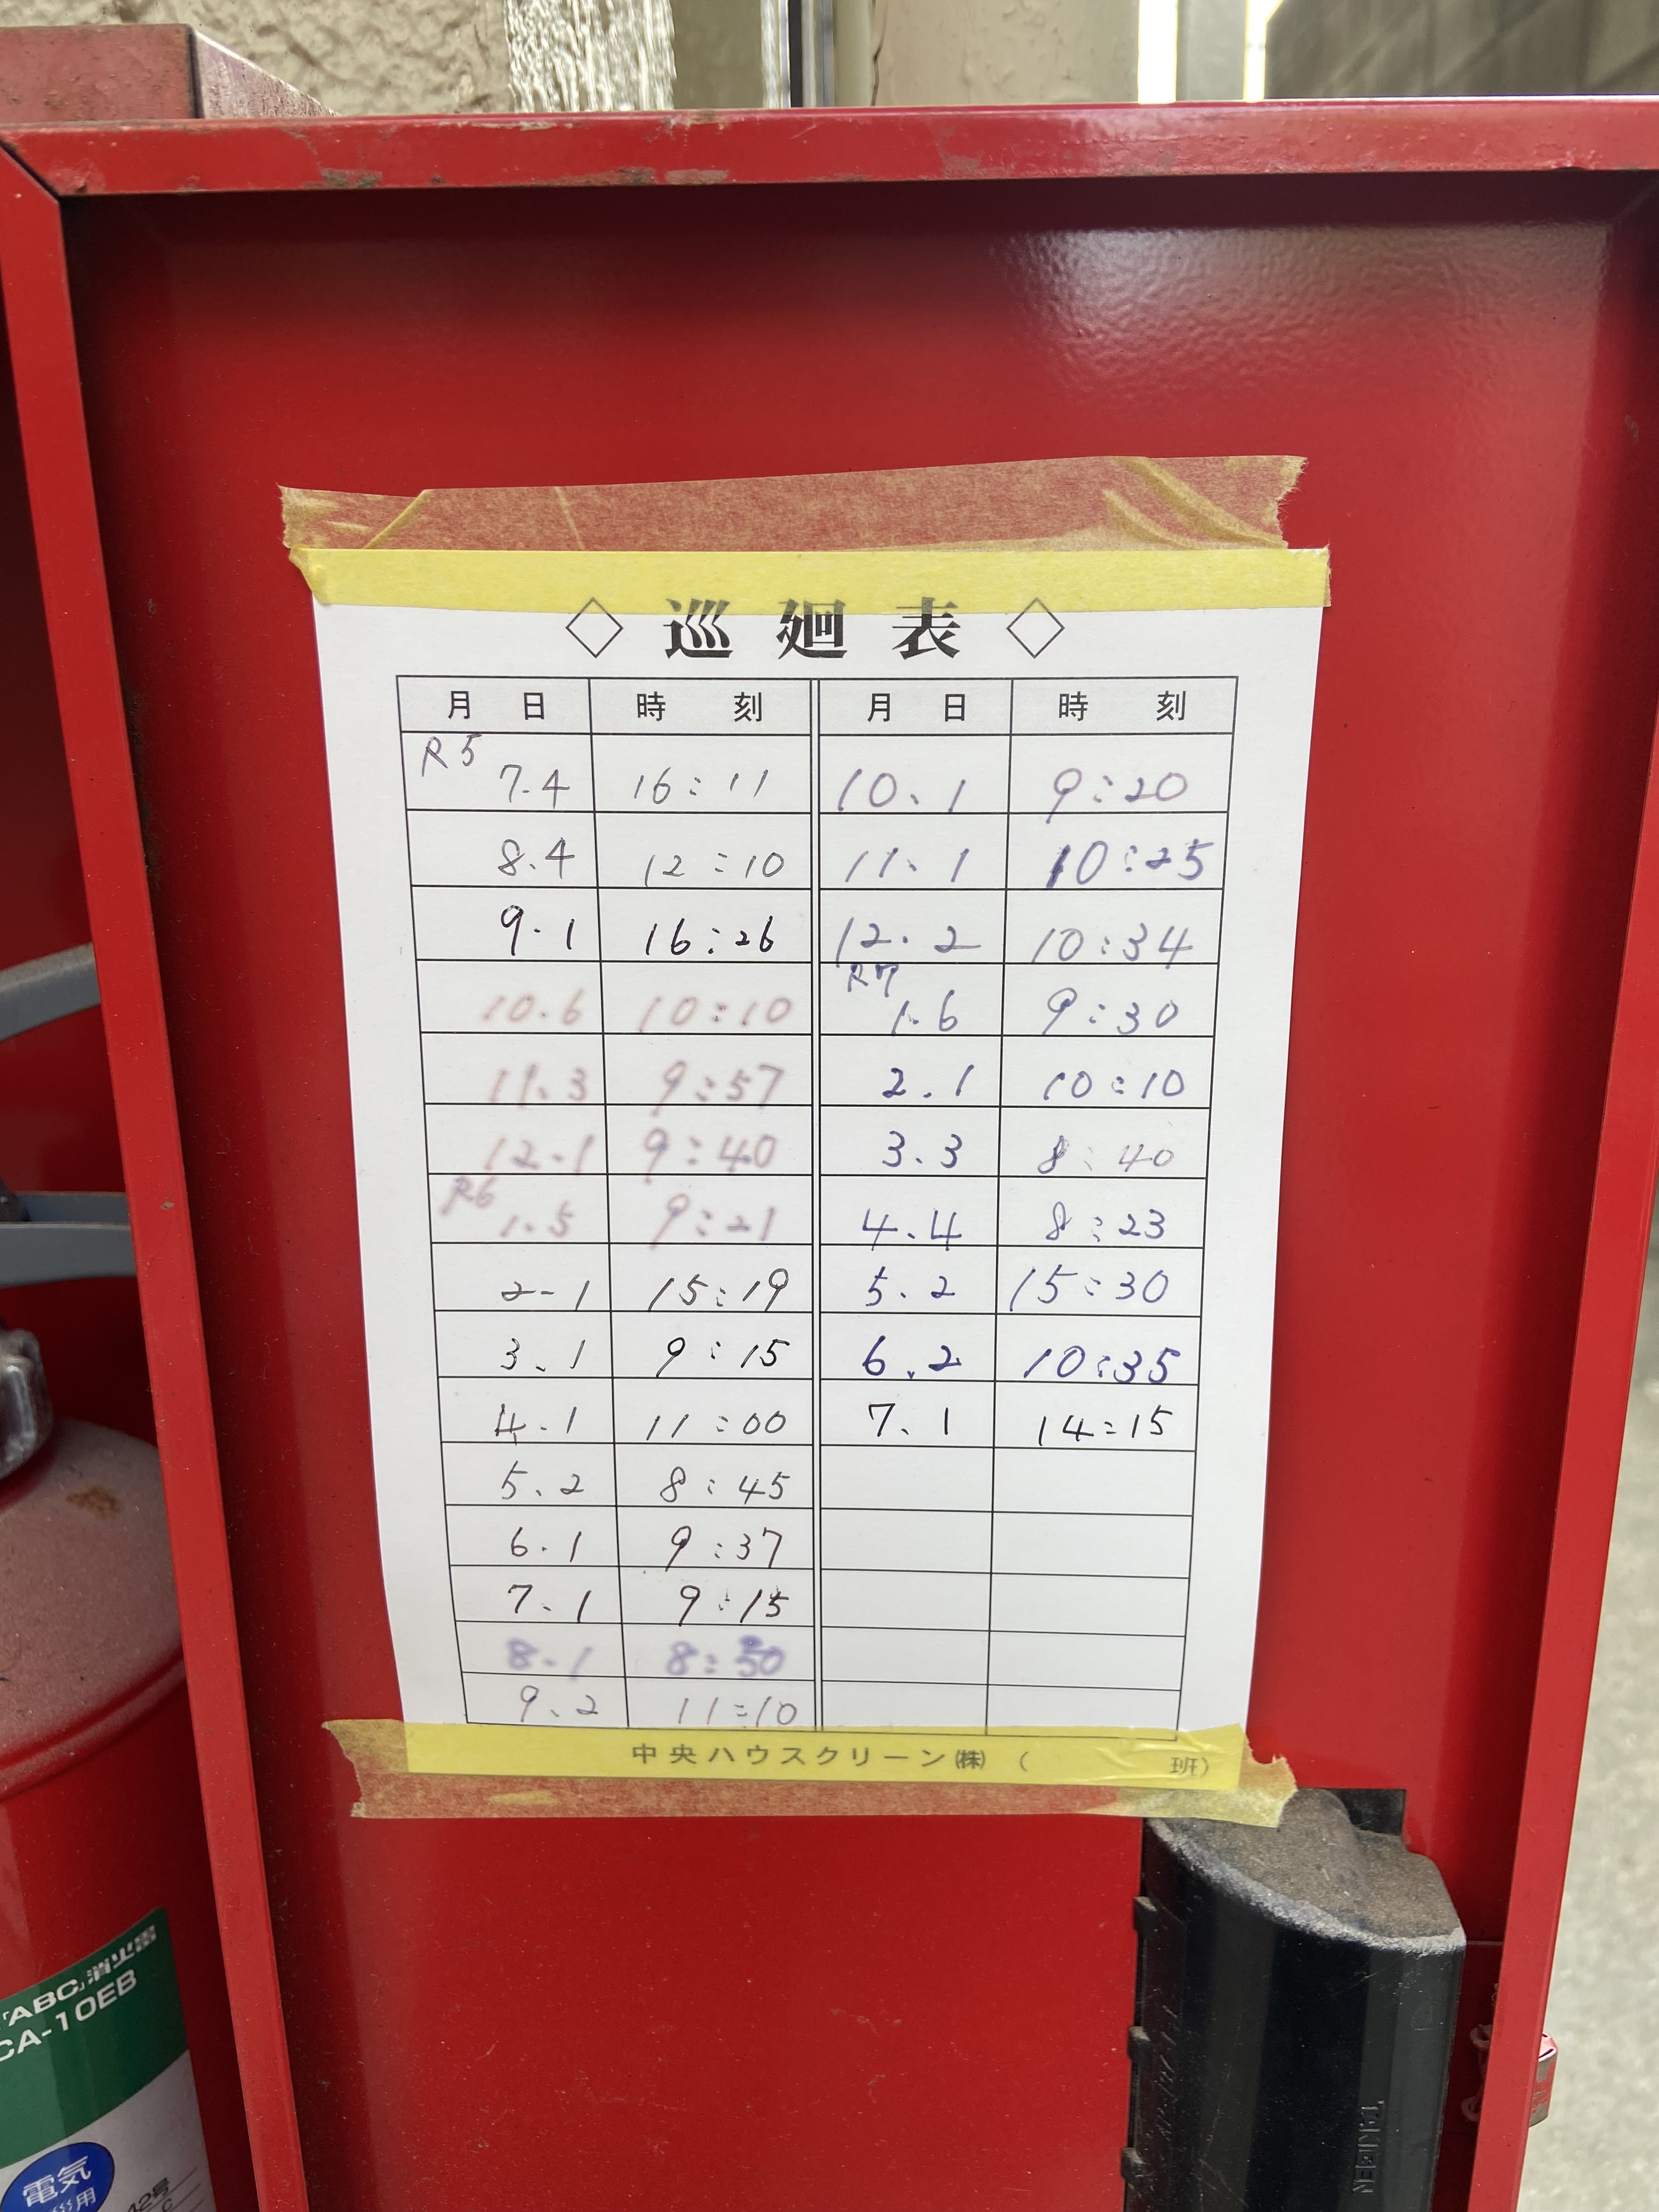 ◇ 巡廻表 ◇
月日 時刻 月日 時刻
R5 7.4 16:11 10.1 9:20
8.4 12:10 11.1 10:25
9.1 16:26 12.2 10:34
10.6 10:10 R7 1.6 9:30
11.3 9:57 2.1 10:10
12.1 9:40 3.3 8:40
R6 1.5 9:21 4.4 8:23
2-1 15:19 5.2 15:30
3.1 9:15 6.2 10:35
4.1 11:00 7.1 14:15
5.2 8:45
6.1 9:37
7.1 9:15
8.1 8:50
9.2 11:10
中央ハウスクリーン㈱ ( 班)
「ABC」消火器
CA-10EB
電気
用
TAKIGEN